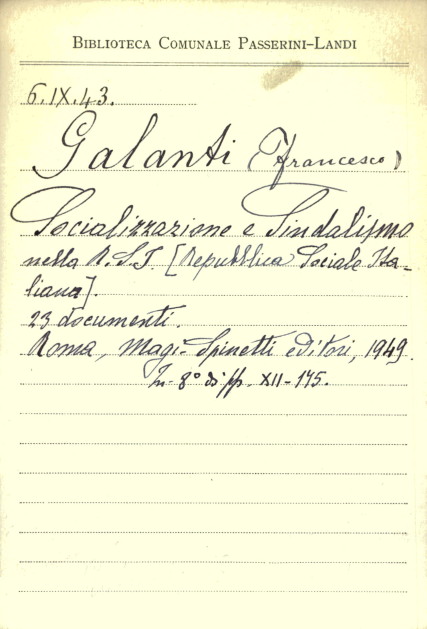 BIBLIOTECA COMUNALE PASSERINI-LANDI
6.IX.43.
Galanti (Francesco)
Socializzazione e Sindalismo
nella R.S.I. [Repubblica Sociale Ita-
liana].
23 documenti.
Roma, Magi-Spinetti editori, 1949.
In-8° di pp. XII-175.